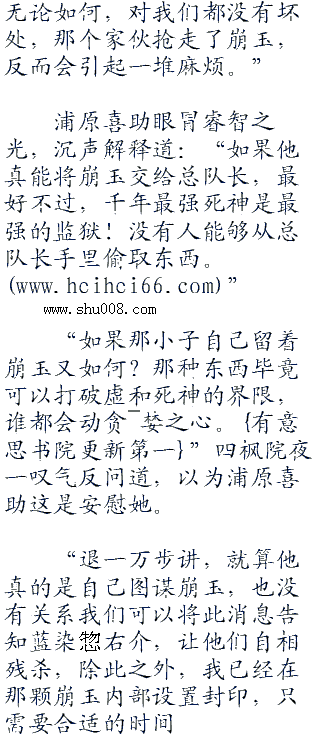 无论如何，对我们都没有坏
处，那个家伙抢走了崩玉，
反而会引起一堆麻烦。”
浦原喜助眼冒睿智之
光，沉声解释道：“如果他
真能将崩玉交给总队长，最
好不过，千年最强死神是最
强的监狱！没有人能够从总
队长手里偷取东西。
(www.hcihci66.com)”
www.shu008.com
“如果那小子自己留着
崩玉又如何？那种东西毕竟
可以打破虚和死神的界限，
谁都会动贪婪之心。{有意
思书院更新第一}”四枫院夜
一叹气反问道，以为浦原喜
助这是安慰她。
“退一万步讲，就算他
真的是自己图谋崩玉，也没
有关系我们可以将此消息告
知蓝染惣右介，让他们自相
残杀，除此之外，我已经在
那颗崩玉内部设置封印，只
需要合适的时间